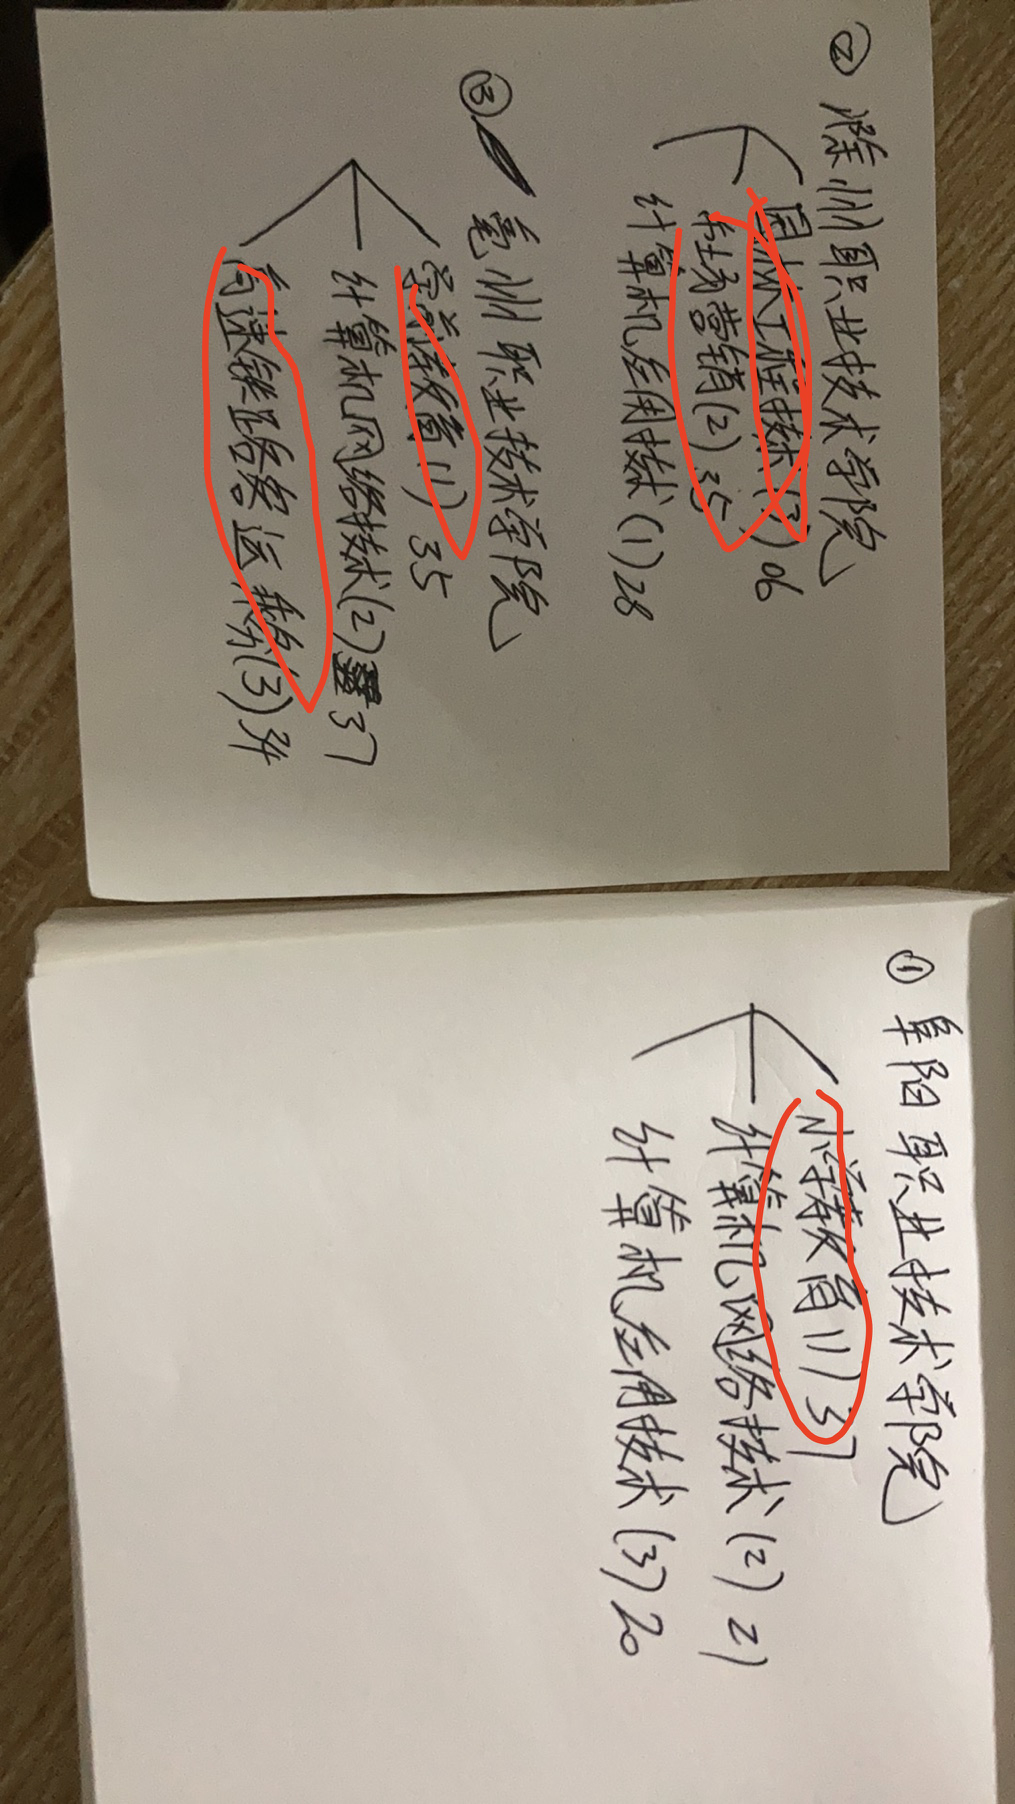 ② 滁州职业技术学院
园林工程技术(3)06
市场营销(2)35
计算机应用技术(1)28
③ 亳州职业技术学院
学前教育(1)35
计算机网络技术(2)37
高速铁路客运乘务(3)34
① 阜阳职业技术学院
小学教育(1)37
计算机网络技术(2)21
计算机应用技术(3)20